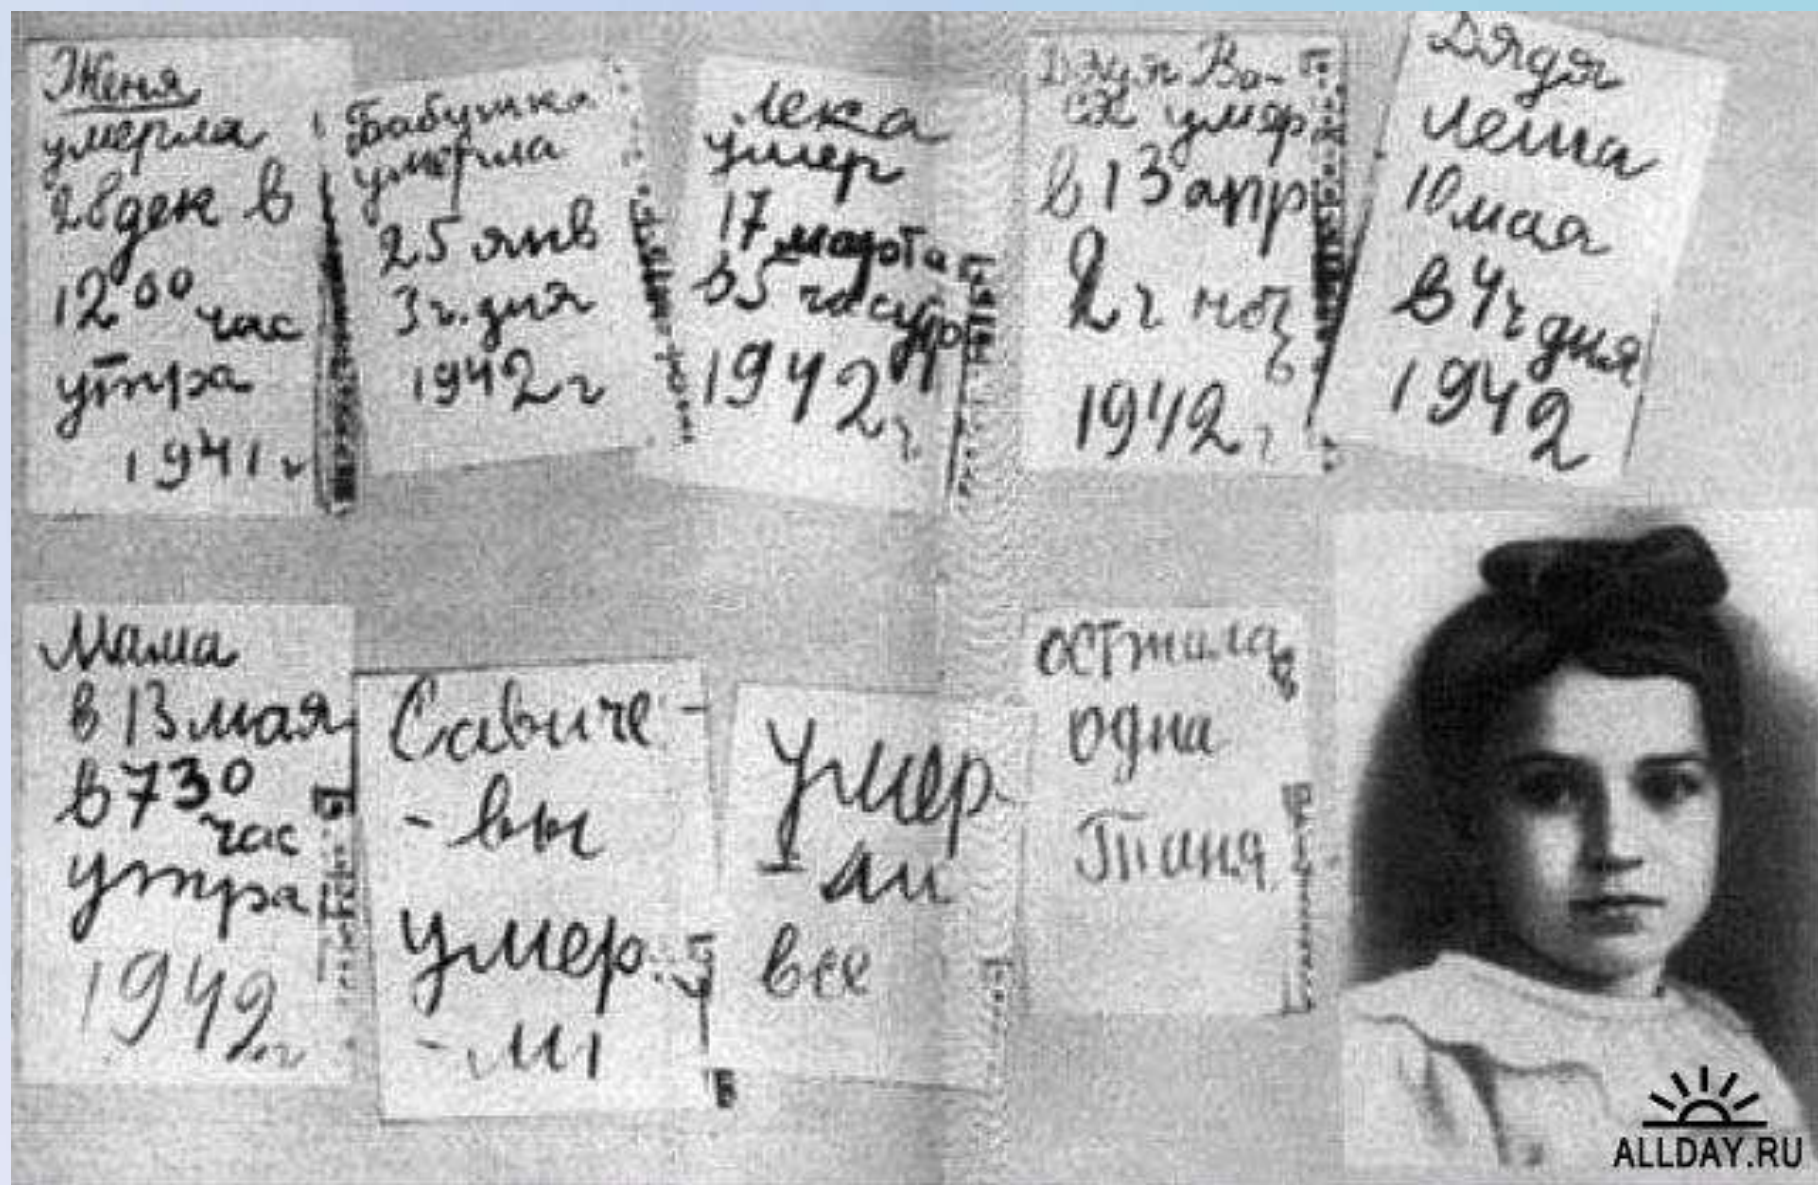 Женя
умерла
28 дек в
12 00 час
утра
1941 г
Бабушка
умерла
25 янв
3 ч. дня
1942 г
Лека
умер
17 марта
в 5 час утр
1942 г
Дядя Ва-
ся умер
в 13 апр
2 ч ноч
ь
1942 г
Дядя
Леша
10 мая
в 4 ч дня
1942
Мама
в 13 мая
в 7 30
час
утра
1942 г
Савиче-
-вы
умер
-ли
Умер
-ли
все
Осталась
одна
Таня
ALLDAY.RU